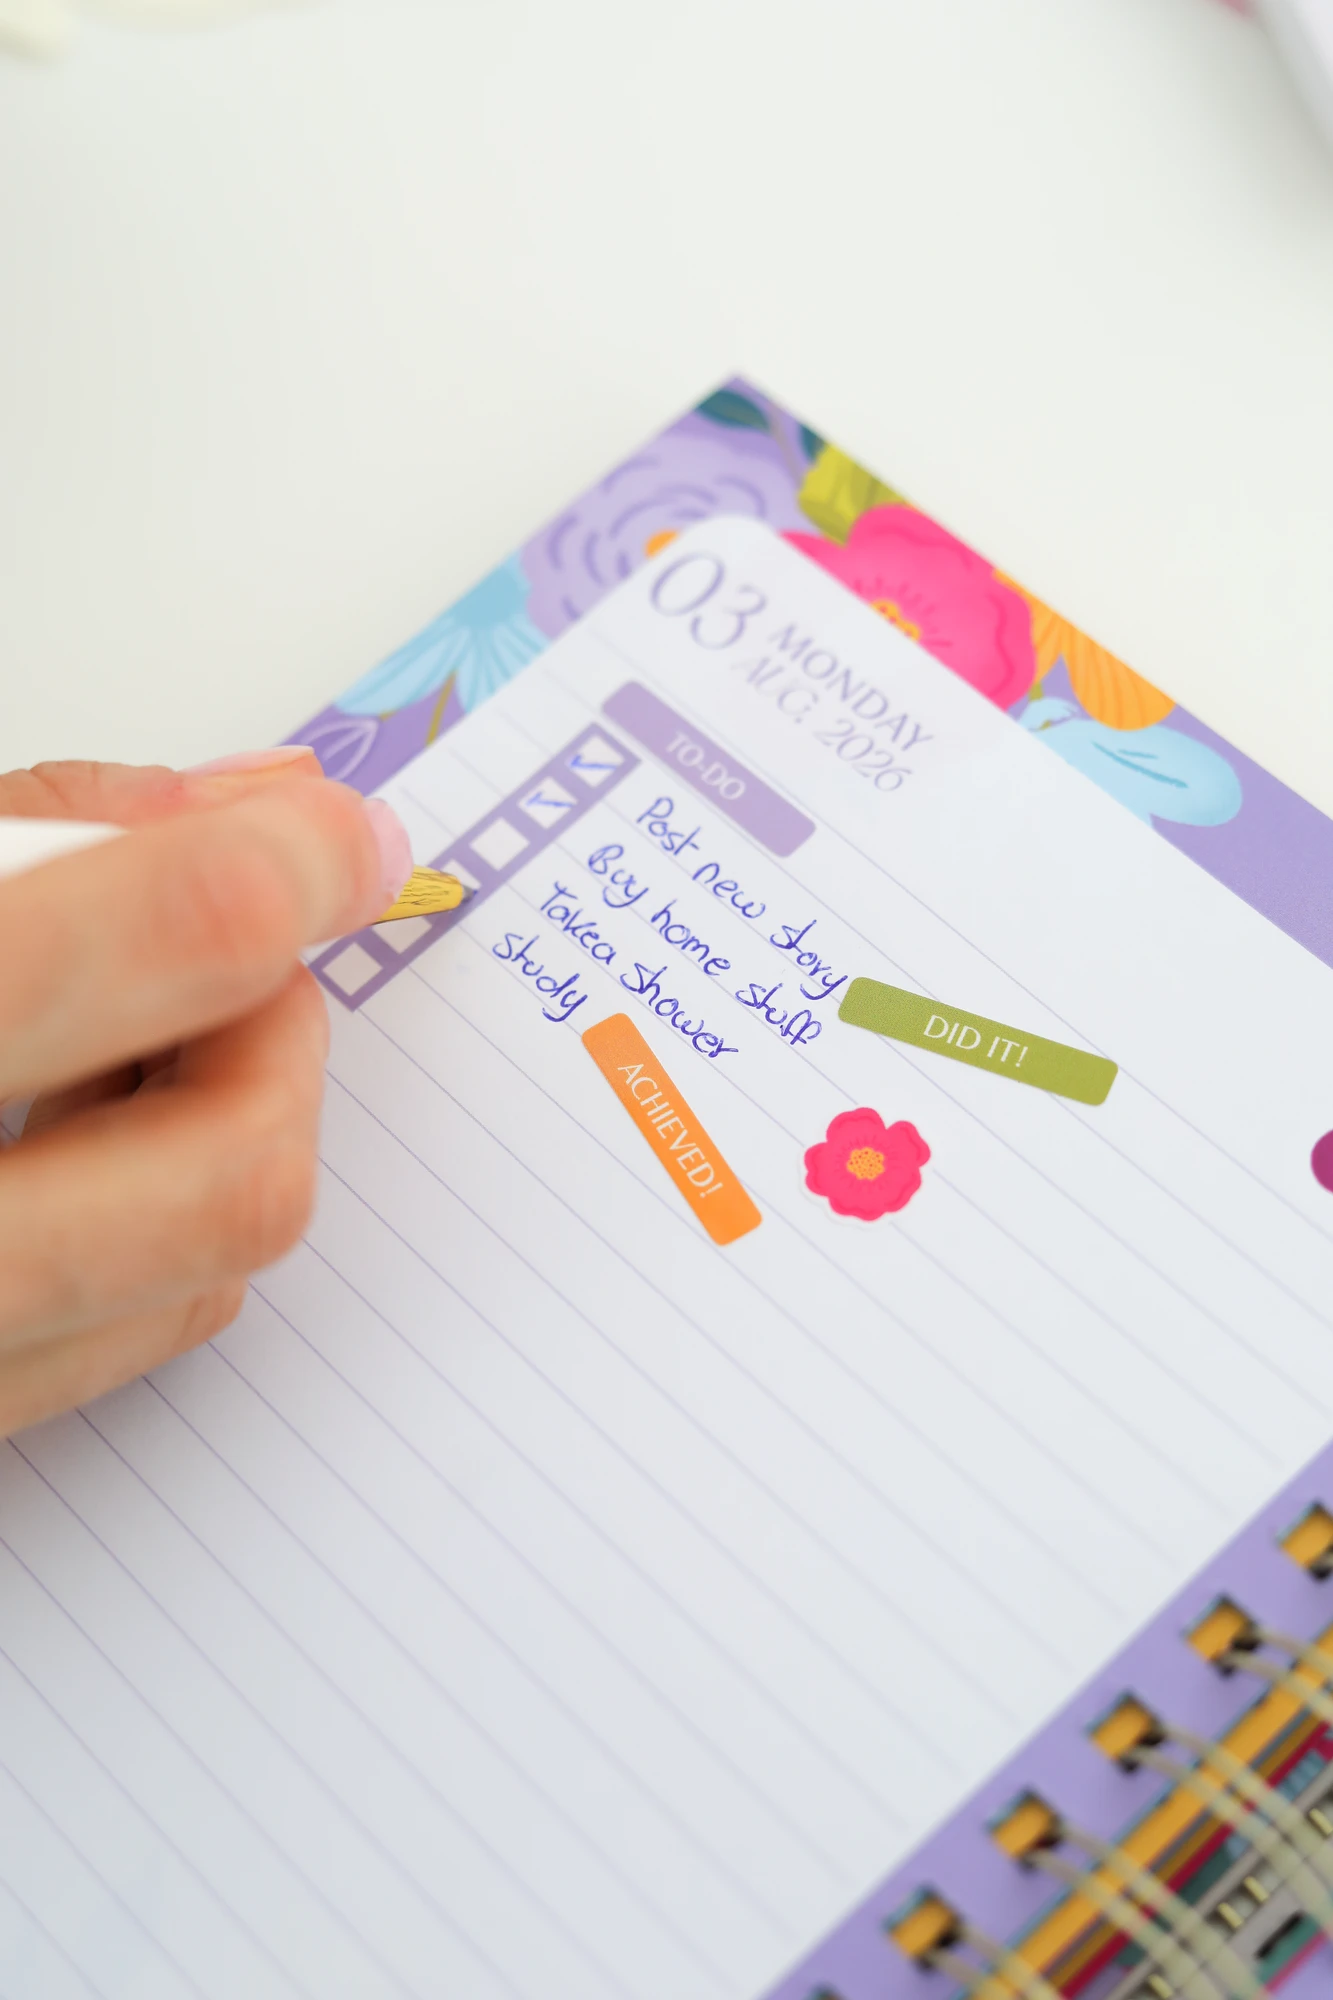 03 MONDAY
AUG, 2026
TO-DO
Post new story
Buy home stuff
Take a shower
Study
DID IT!
ACHIEVED!